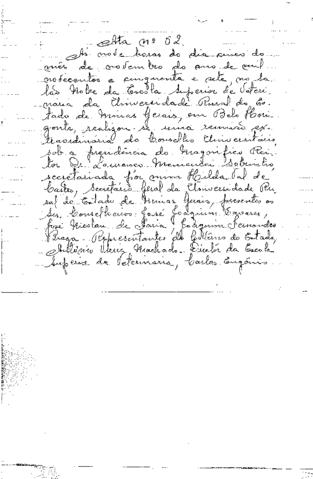 Ata nº 52.
Às nove horas do dia cinco do
mês de novembro do ano de mil
novecentos e cinquenta e sete, no Sa-
lão Nobre da Escola Superior de Veteri-
nária da Universidade Rural do Es-
tado de Minas Gerais, em Belo Hori-
zonte, realizou-se uma reunião ex-
traordinária do Conselho Universitário
sob a presidência do Magnífico Rei-
tor Dr. Lourenco Menicucci Sobrinho,
secretariada por mim Hilda Val de
Castro, Secretária Geral da Universidade Ru-
ral do Estado de Minas Gerais, presentes os
Srs. Conselheiros: José Joaquim Tavares,
José Nicolau de Faria, Joaquim Fernandes
Braga - Representantes do Govêrno do Estado,
Antônio Vieira Machado - Diretor da Escola
Superior de Veterinária, Carlos Eugênio